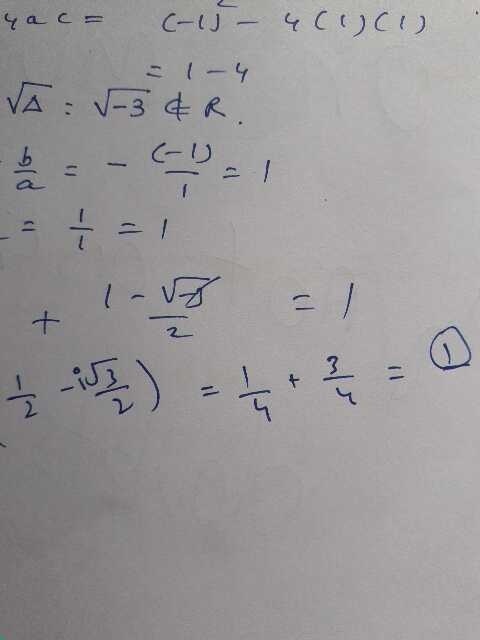 4ac = (-1)² - 4(1)(1)
= 1 - 4
√Δ = √-3 ∉ R.
b/a = - (-1)/1 = 1
= 1/1 = 1
+ (1 - √-3)/2 = 1
1/2 - i√3/2) = 1/4 + 3/4 = 1